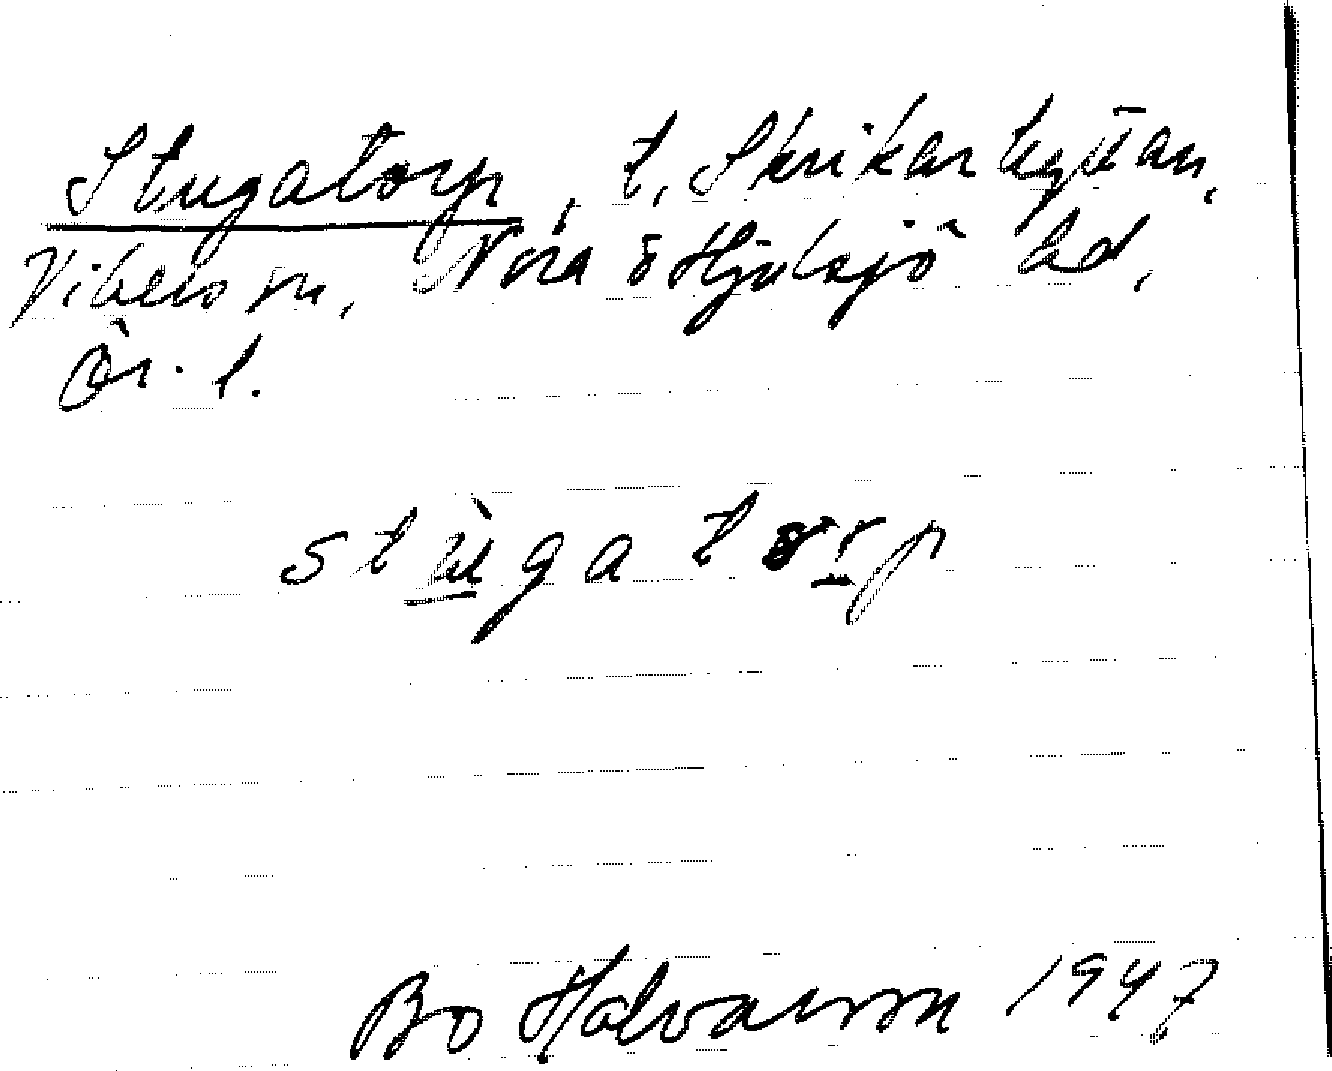 Stugatorp, t. Skrikarhyttan,
Vikers sn, Nora o Hjulsjö hd,
Ör. l.
stùgatorp
Bo Halvarson 1947